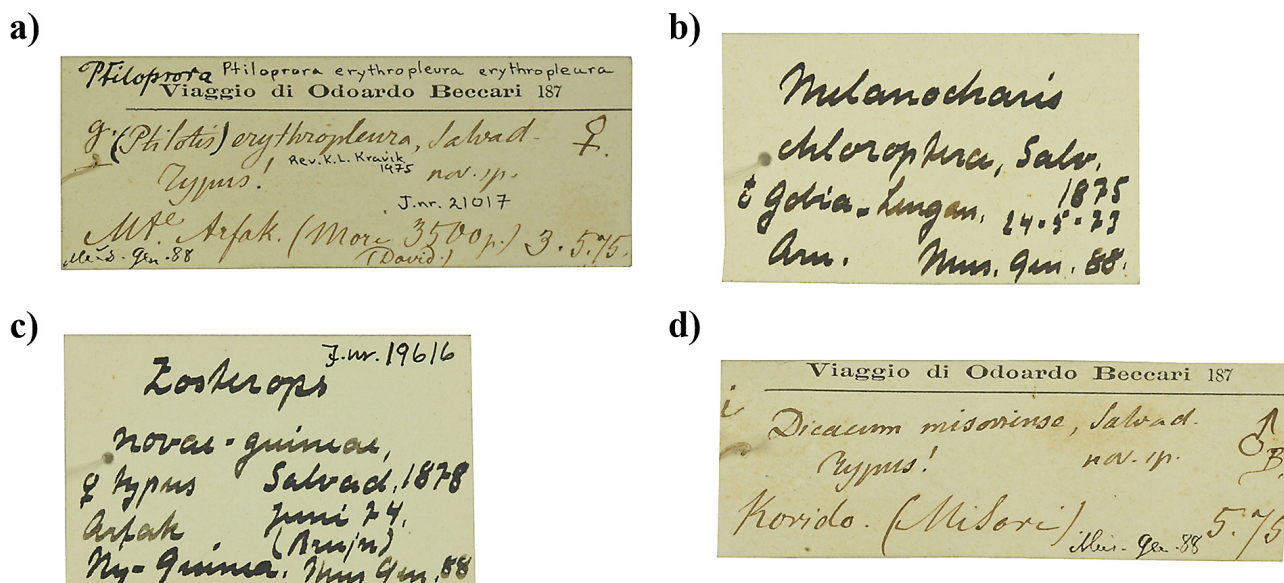 a)
Ptiloprora Ptiloprora erythropleura erythropleura
Viaggio di Odoardo Beccari 187
g. (Ptilotis) erythropleura, Salvad. ♀.
Rev. K.L. Kravik
1975
Typus! nov. sp.
J.nr. 21017
Mte. Arfak. (More 3500 p.) 3. 5.75.
(David.)
Mus. Gen. 88
b)
Melanocharis
chloroptera, Salv.
Gobia-Lungan. 1875
24-5-73
Aru. Mus. Gen. 88.
c)
J.nr. 19616
Zosterops
novae-guineae,
♀ typus Salvad. 1878
Arfak Juni 74,
(Bruijn)
Ny-Guinea. Mus Gen. 88
d)
Viaggio di Odoardo Beccari 187
i
Dicaeum misoriense, Salvad. ♂
Typus! nov. sp. B.
Korido. (Misori) 5.75
Mus. Gen. 88